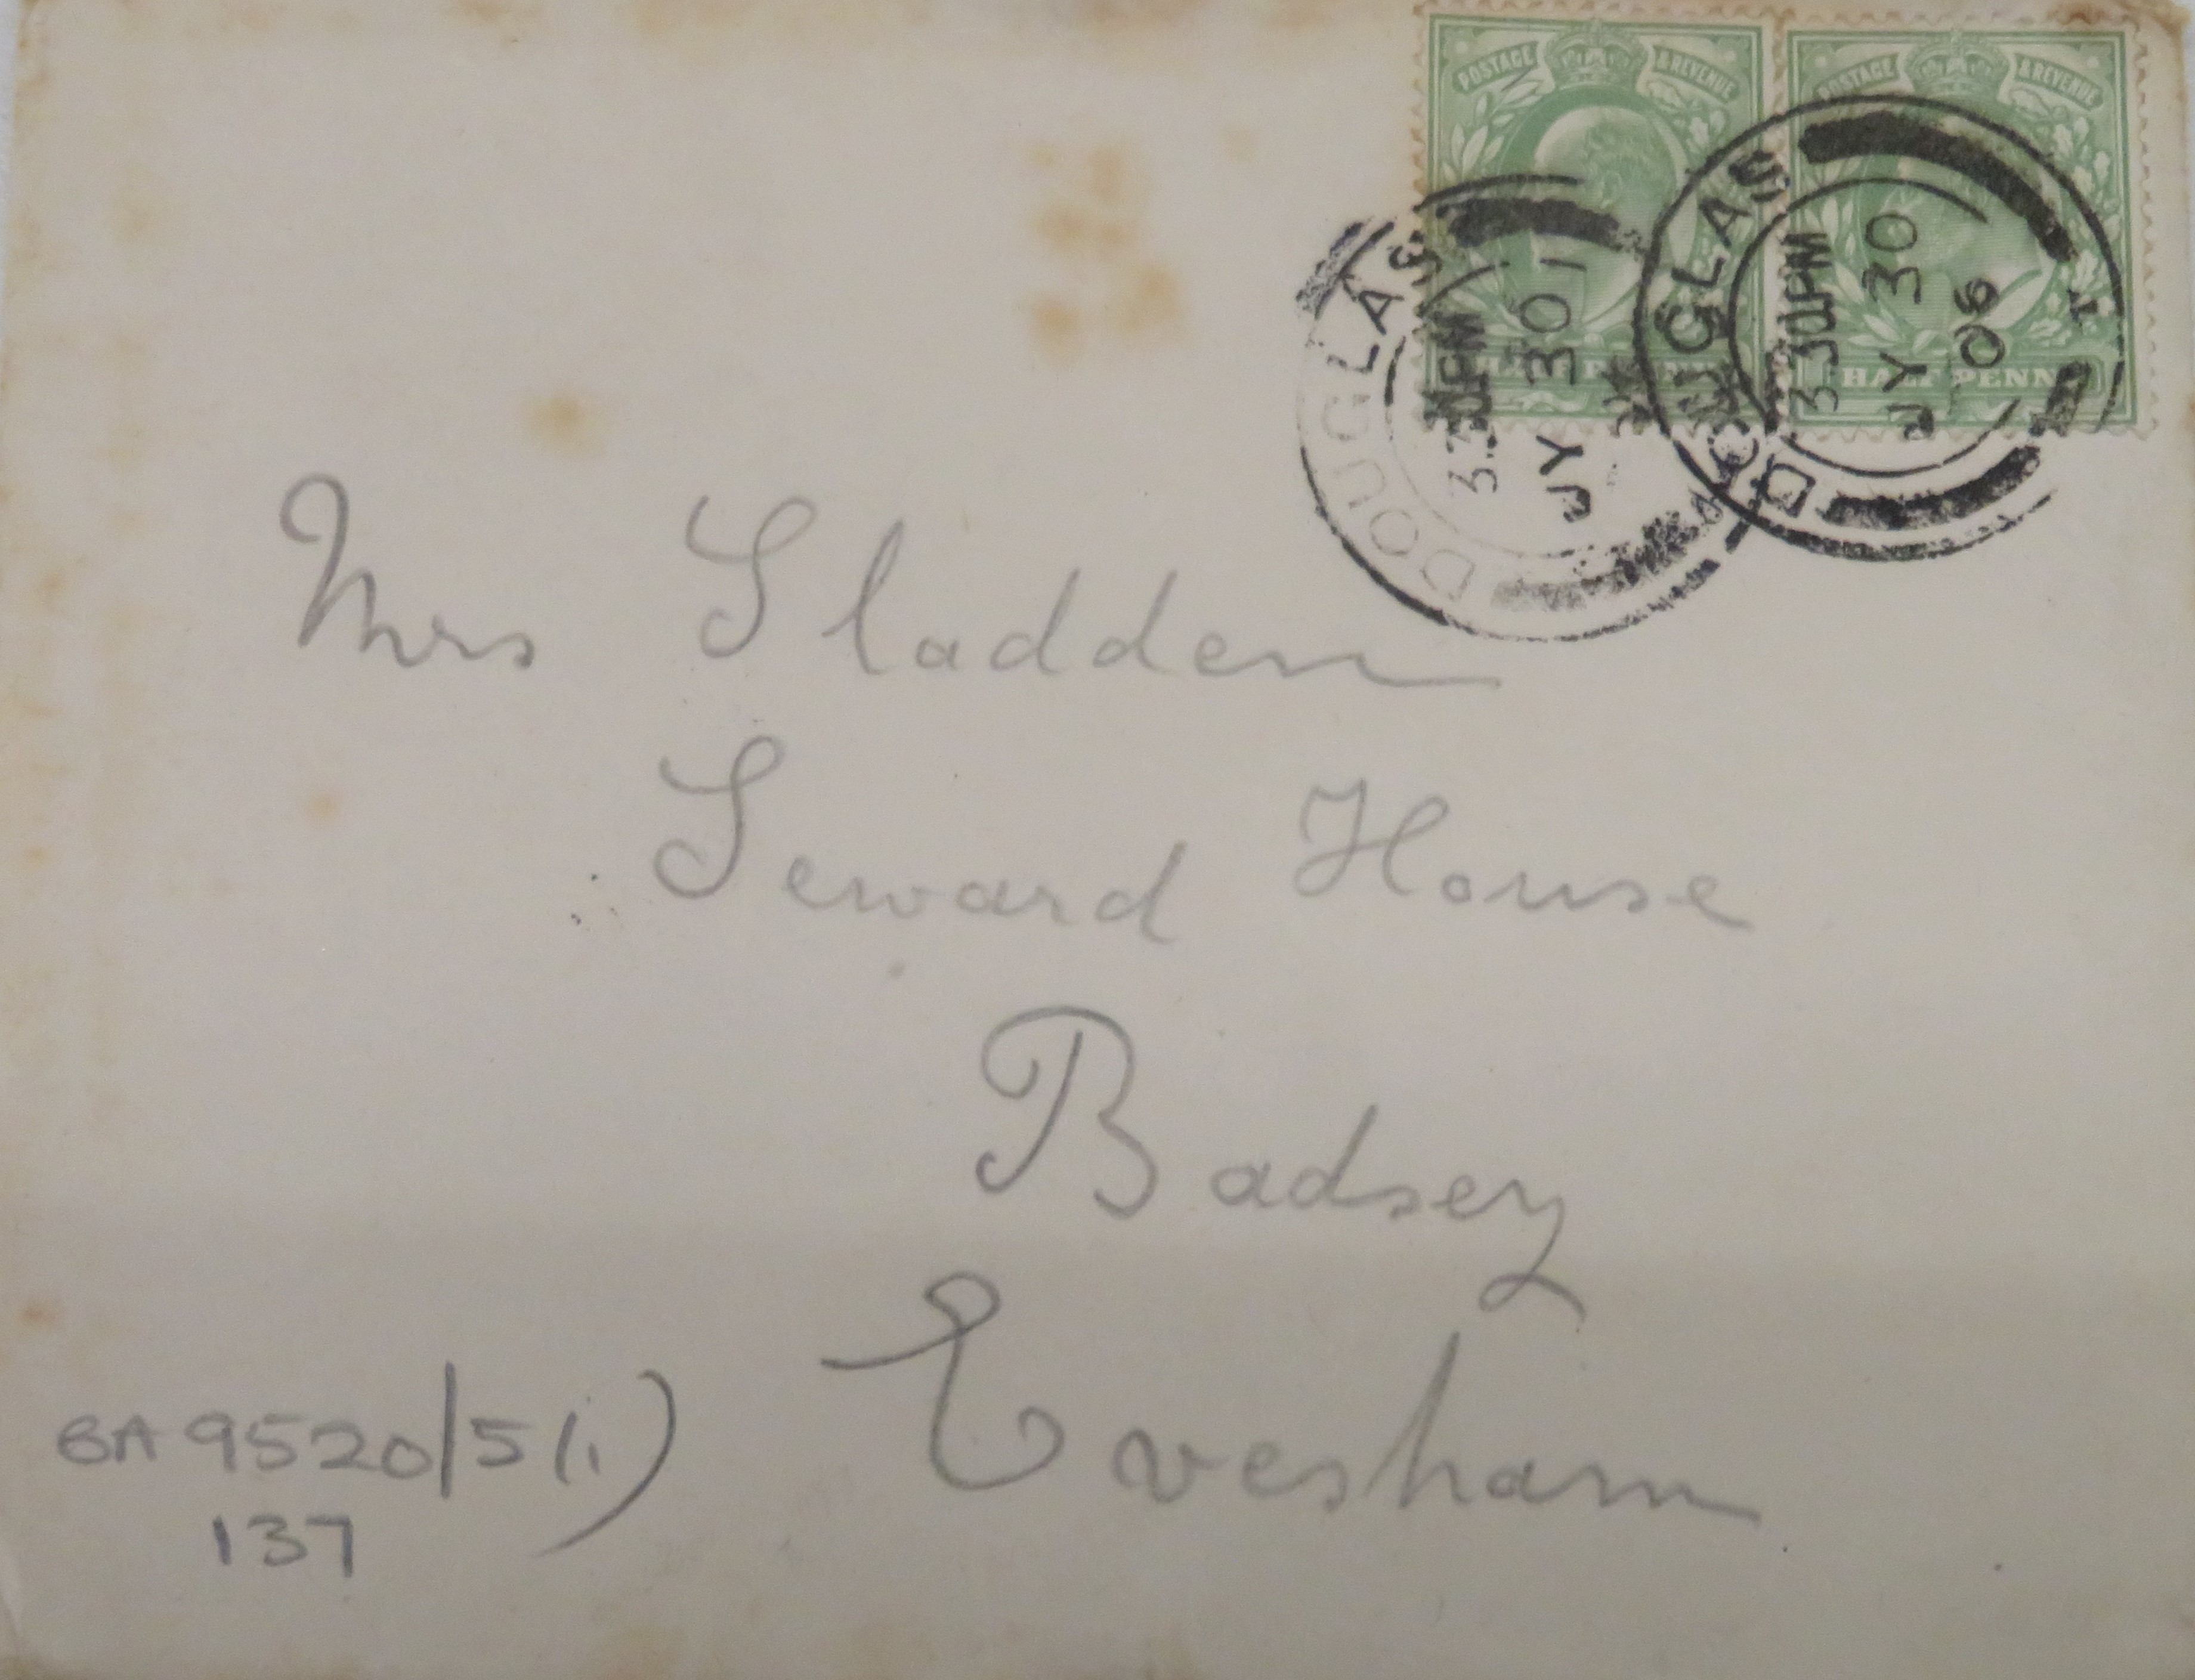 POSTAGE & REVENUE
POSTAGE & REVENUE
HALF PENNY
HALF PENN
DOUGLAS
3.30PM
JY 30
DOUGLAS
3.30PM
JY 30
06
Mrs Sladden
Seward House
Badsey
Evesham
BA 9520/5(i)
137